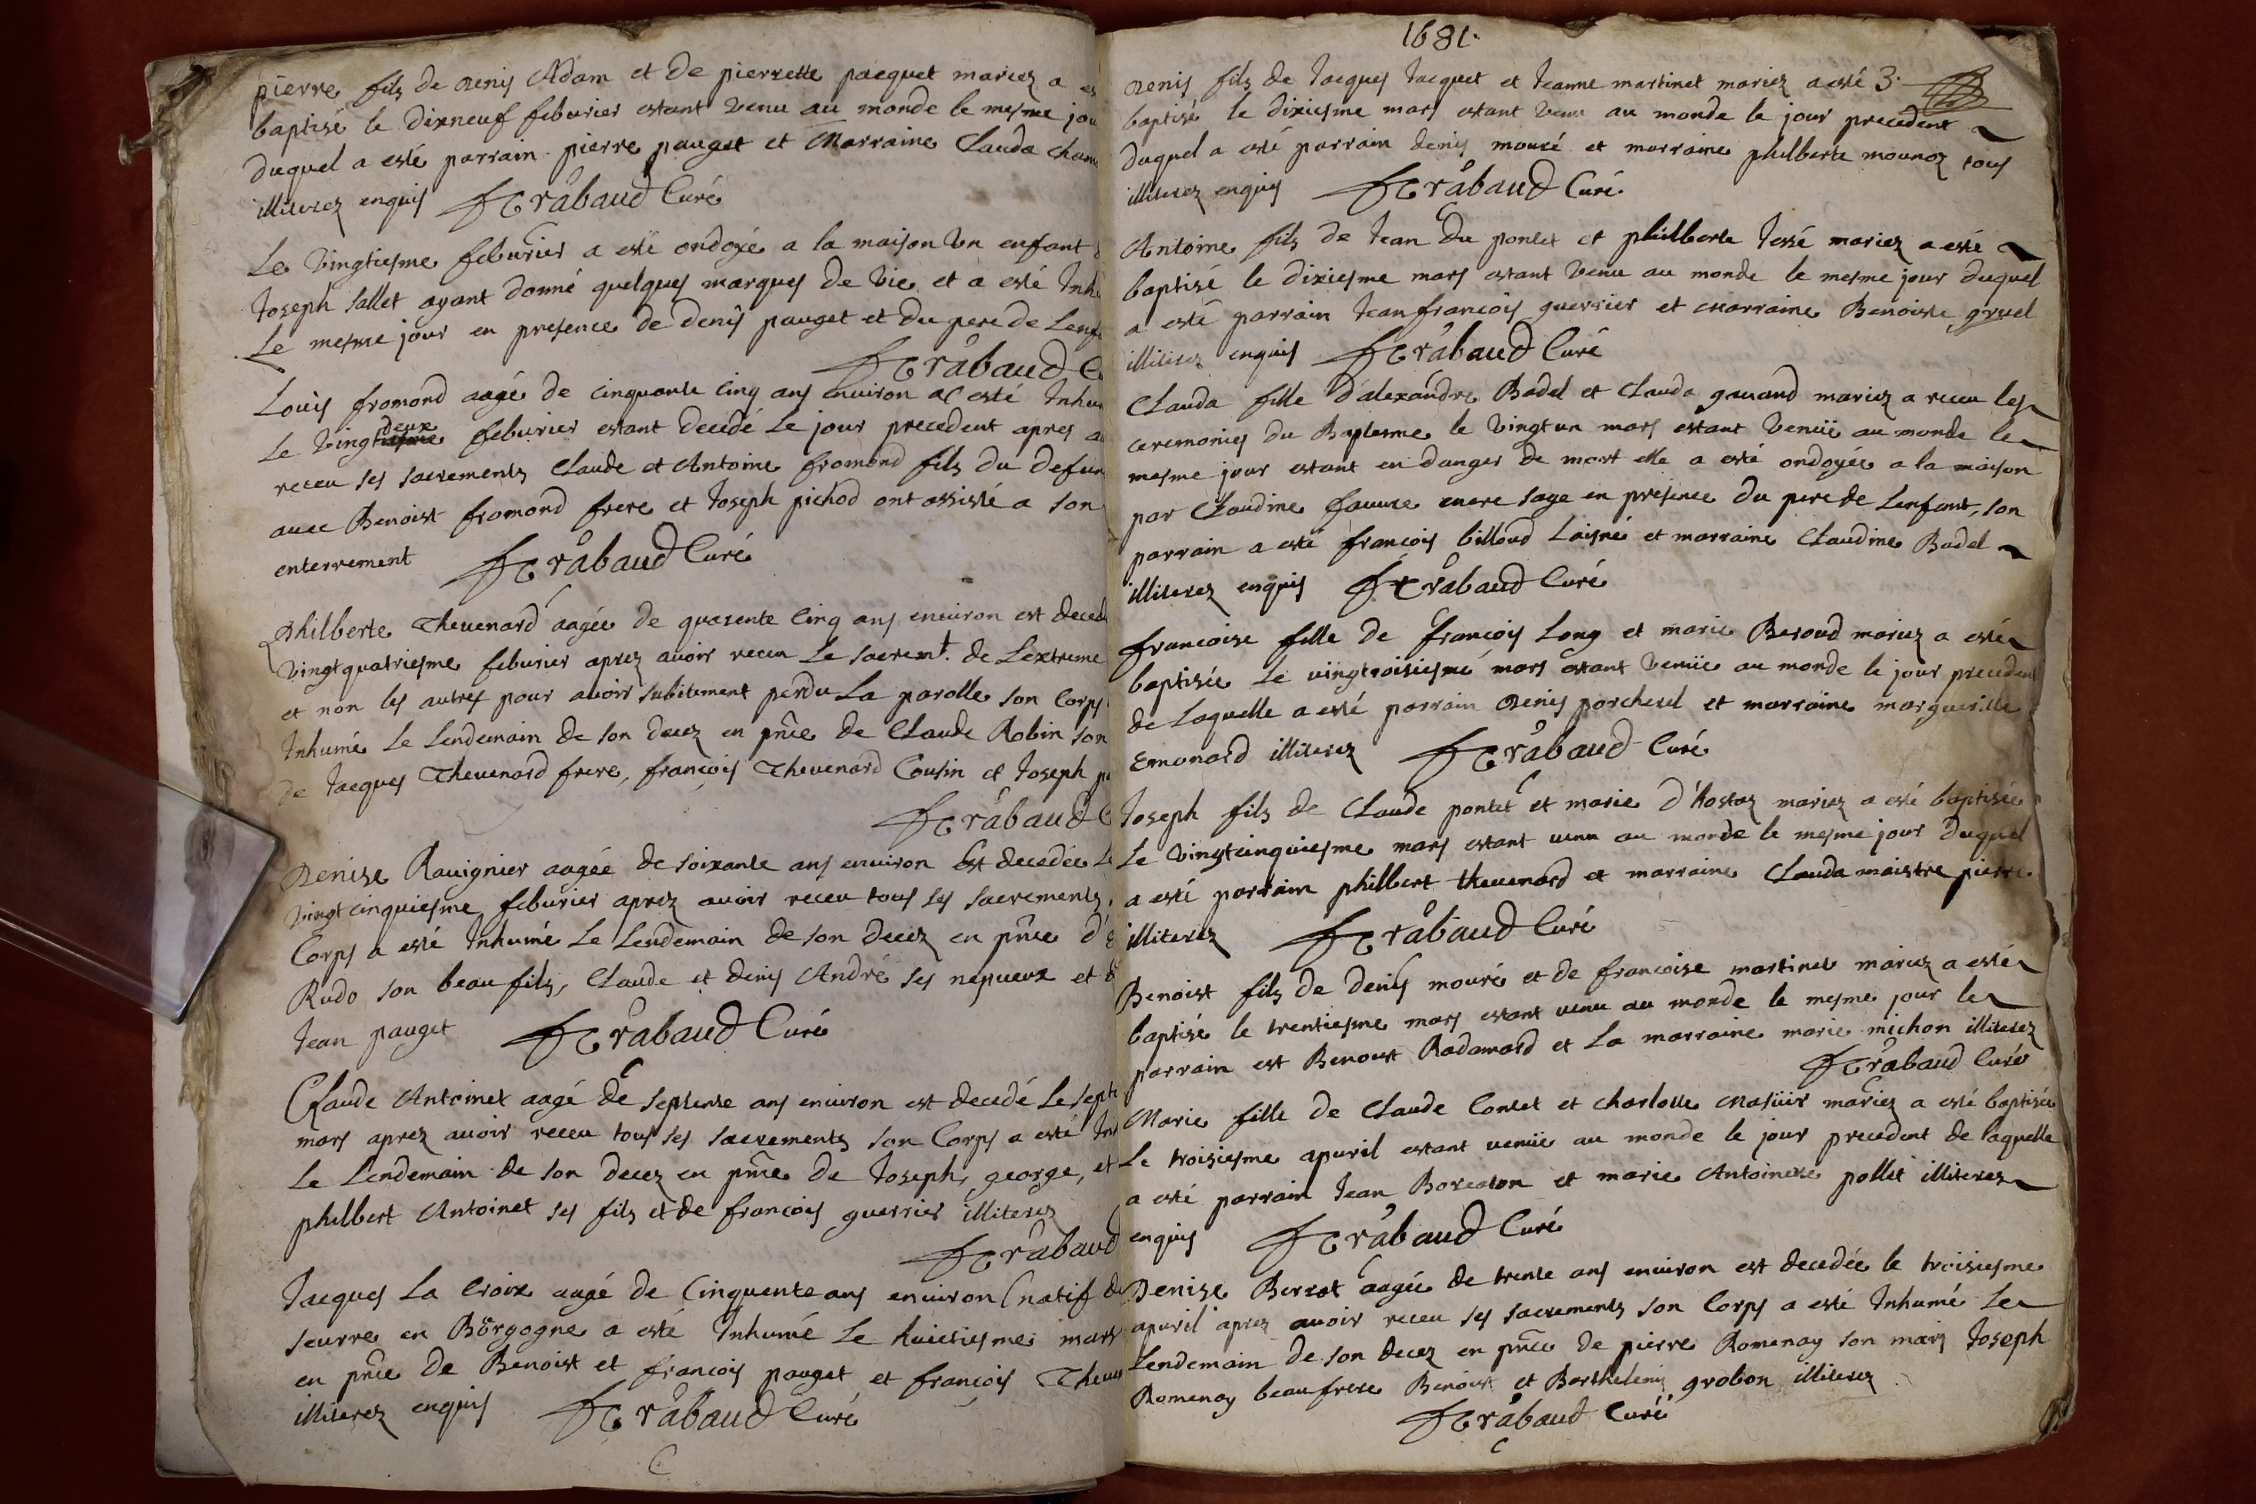 pierre fils de Denis Adam et de pierrette pacquet mariez a
baptisé le dixneuf feburier estant venu au monde le mesme jou
duquel a esté parrain pierre pauget et Marraine Clauda
illiterez enquis Trabaud Curé
Le vingtiesme feburier a esté ondoyé a la maison un enfant
Joseph Sallet ayant donné quelques marques de vie et a esté Inh
Le mesme jour en presence de denis pauget et du pere de Lenf
Trabaud C
Louis fromond aagé de cinquante cinq ans environ a esté Inhu
Le vingt deux feburier estant decedé Le jour precedent apres
receu ses sacrements Claude et Antoine fromond fils du defun
avec Benoist fromond frere et Joseph pichod ont assisté a son
enterrement Trabaud Curé
Philberte Thevenard aagée de quarente cinq ans environ est deced
vingtquatriesme feburier aprez avoir receu Le sacremt. de Lextreme
et non les autres pour avoir subitement perdu La parolle son Corps
Inhumé Le Lendemain de son decez en pnce de Claude Robin son
de Jacques Thevenard frere, françois Thevenard Cousin et Joseph
Trabaud C
Denize Ravignier aagée de soixante ans environ Est decedée Le
vingtcinquiesme feburier aprez avoir receu tous ses sacrements
Corps a esté Inhumé Le Lendemain de son decez en pnce d'
Rudo son beau fils, Claude et denis André ses nepueux et d
Jean pauget Trabaud Curé
Claude Antoinet aagé de septente ans environ est decedé Le sept
mars aprez avoir receu tous ses sacrements son Corps a esté In
Le Lendemain de son decez en pnce de Joseph, george, et
philbert Antoinet ses fils et de françois guerrier illiterez
Trabaud
Jacques La Croix aagé de Cinquente ans environ natif de
seurre en Borgogne a esté Inhumé Le huictiesme mars
en pnce de Benoist et françois pauget et françois Theve
illiterez enquis Trabaud Curé
1681.
Denis fils de Jacques Jacquet et Jeanne martinet mariez a esté 3.
baptisé le dixiesme mars estant venu au monde le jour precedent
duquel a esté parrain denis mouré et marraine philberte mounoz tous
illiterez enquis Trabaud Curé
Antoine fils de Jean Du pontet et philberte Jossé mariez a esté
baptisé le dixiesme mars estant venu au monde le mesme jour duquel
a esté parrain Jeanfrancois guerrier et Marraine Benoiste gruel
illiterez enquis Trabaud Curé
Clauda fille d'alexandre Badel et Clauda gavand mariez a receu les
ceremonies du Baptesme le vingtun mars estant venüe au monde le
mesme jour estant en danger de mort elle a esté ondoyée a la maison
par Claudine favure mere sage en presence du pere de Lenfant, son
parrain a esté françois billoud Laisné et marraine Claudine Badel
illiterez enquis Trabaud Curé
francoise fille de françois Long et marie Beroud mariez a esté
baptisée Le vingtroisiesme mars estant venüe au monde le jour precedent
de Laquelle a esté parrain Denis porcherel et marraine margueritte
Emonard illiterez Trabaud Curé
Joseph fils de Claude pontet et marie d'hostaz mariez a esté baptisée
Le vingtcinquiesme mars estant venu au monde le mesme jour duquel
a esté parrain philbert thevenard et marraine Clauda maistre pierre
illiterez Trabaud Curé
Benoist fils de denis mouré et de francoise martinet mariez a esté
baptisé le trentiesme mars estant venu au monde le mesme jour le
parrain est Benoist Radamard et La marraine marie michon illiterez
Trabaud Curé
Marie fille de Claude Contet et charlotte Masüir mariez a esté baptisée
Le troisiesme apuril estant venüe au monde le jour precedent de laquelle
a esté parrain Jean Boreaton et marie Antoinete pollet illiterez
enquis Trabaud Curé
Denize Berrot aagée de trente ans environ est decedée le troisiesme
apuril aprez avoir receu ses sacrements son Corps a esté Inhumé Le
Lendemain de son decez en pnce de pierre Romenay son mary Joseph
Romenay beaufrere Benoist et Barthelemy grobon illiterez
Trabaud Curé